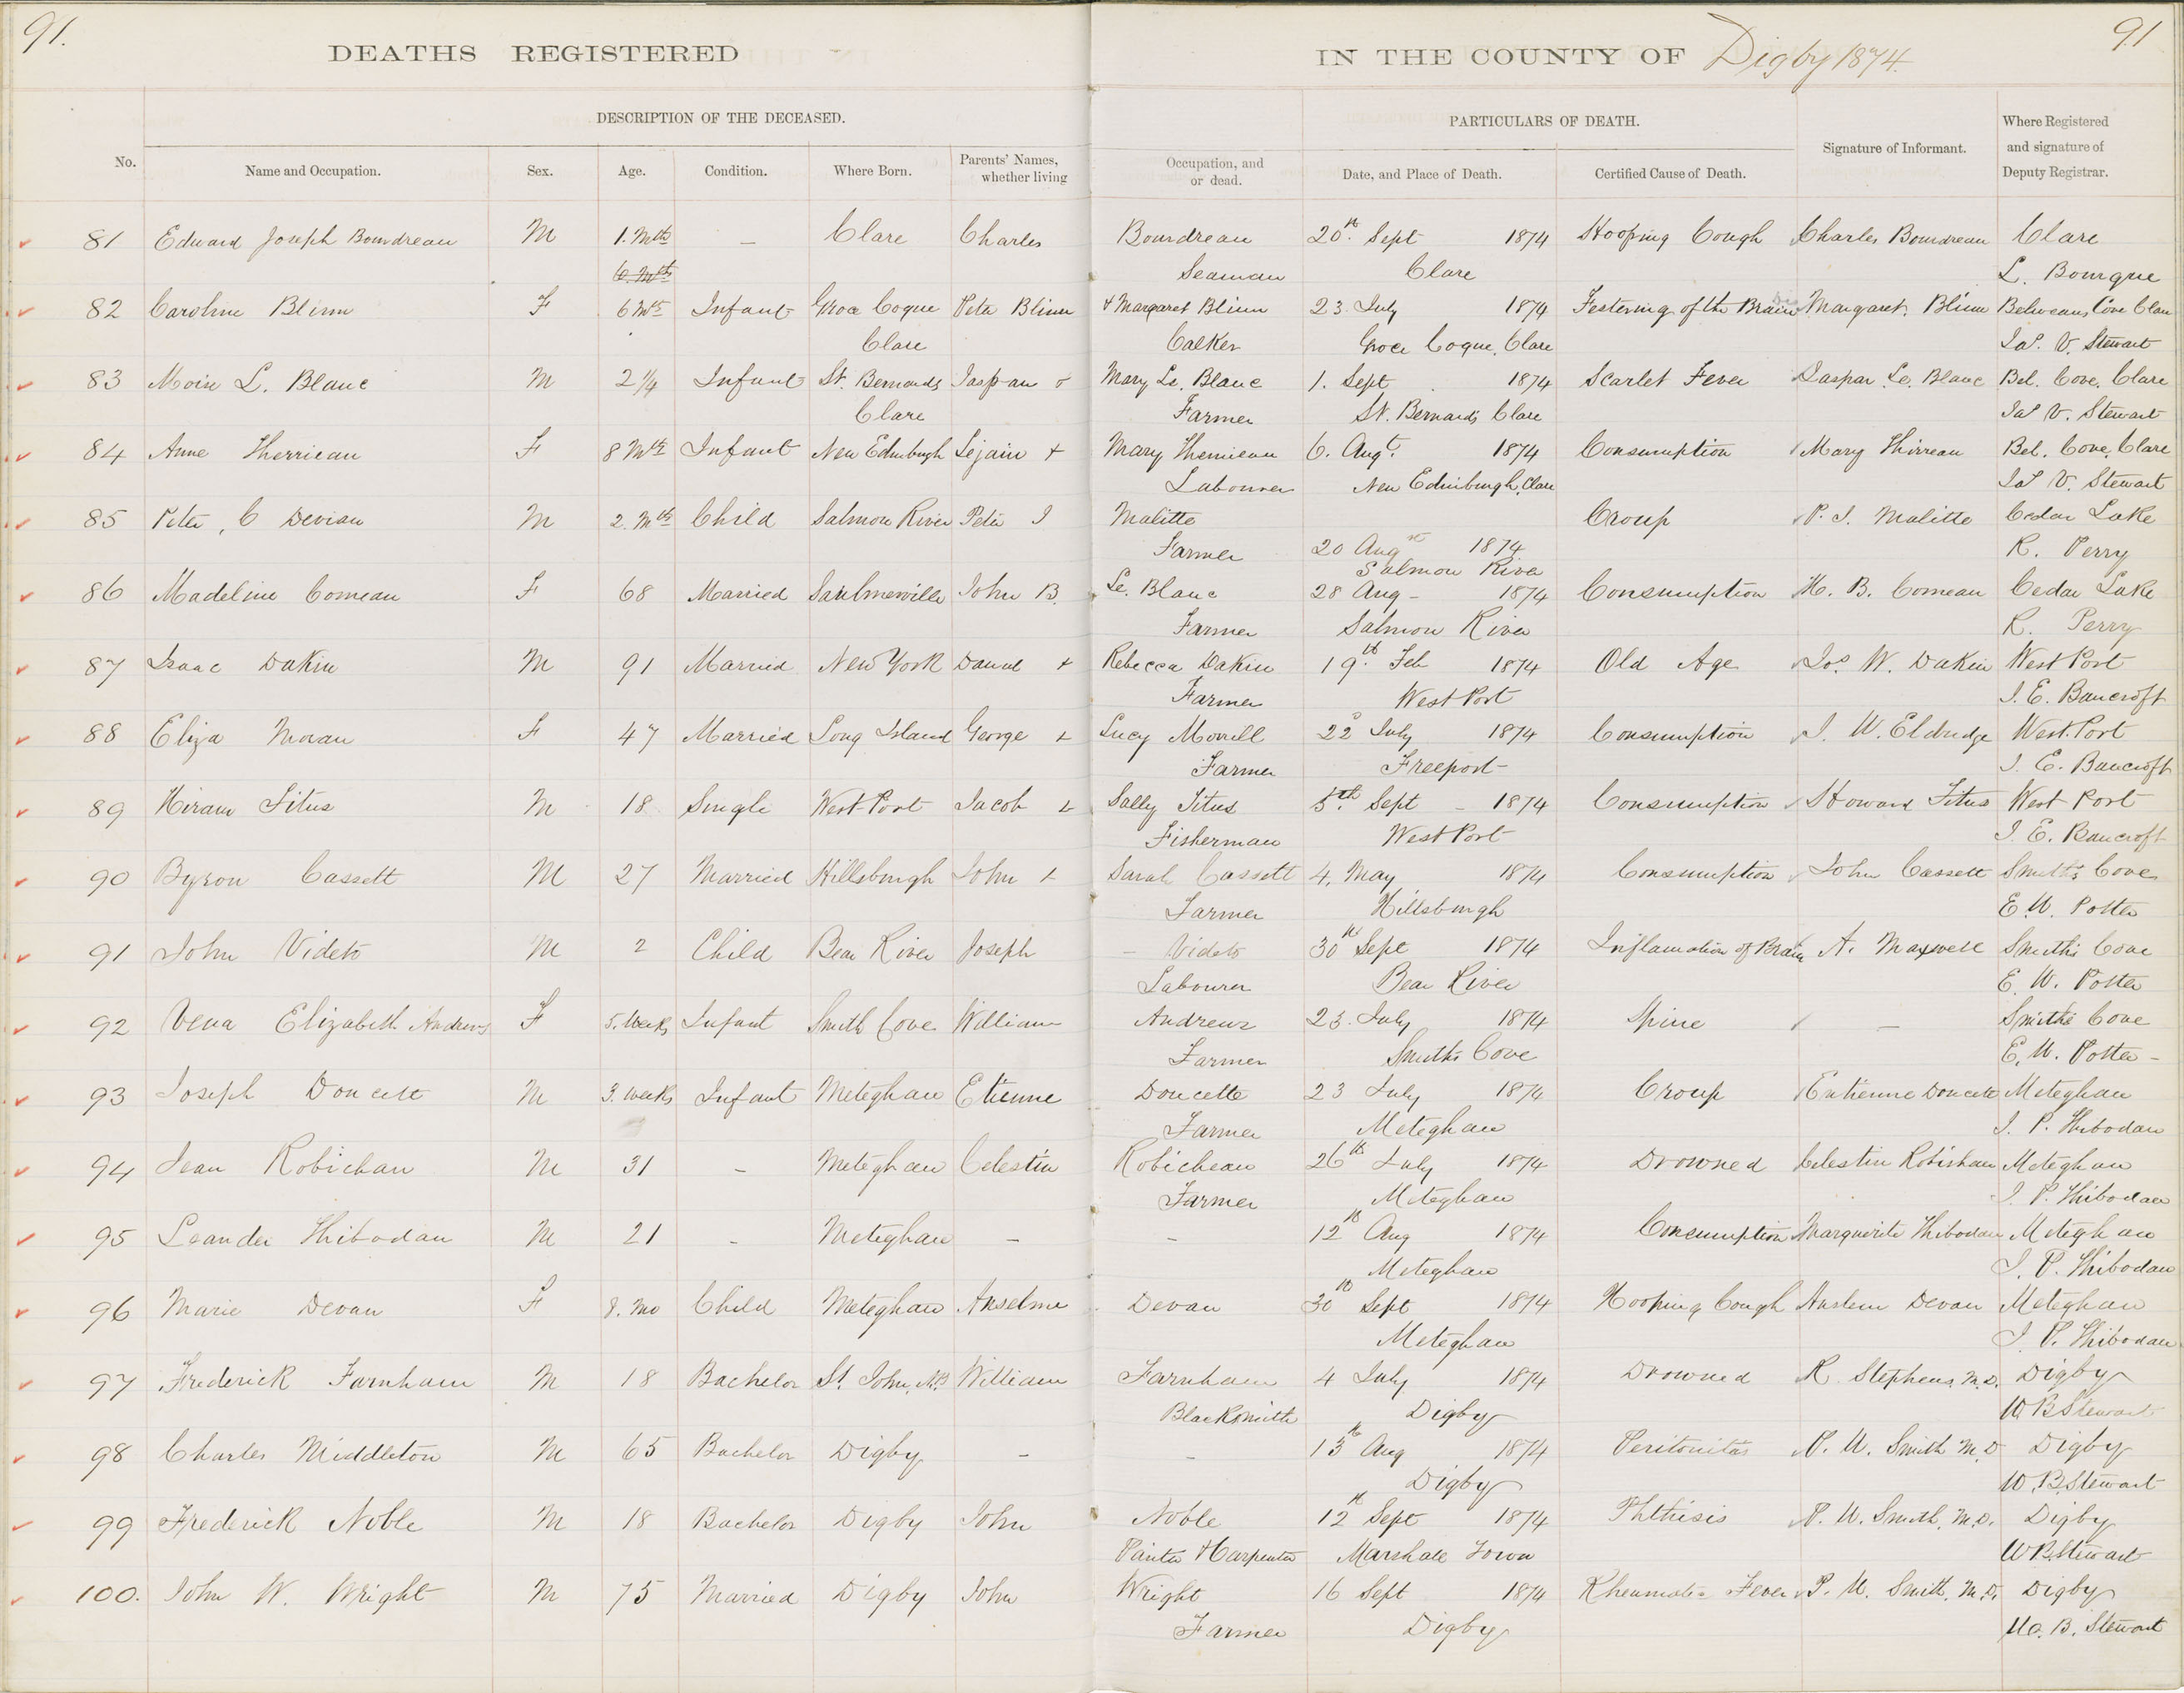 91. 91
DEATHS REGISTERED IN THE COUNTY OF Digby 1874.
DESCRIPTION OF THE DECEASED. PARTICULARS OF DEATH. Where Registered and signature of Deputy Registrar.
No. Name and Occupation. Sex. Age. Condition. Where Born. Parents' Names, whether living Occupation, and or dead. Date, and Place of Death. Certified Cause of Death. Signature of Informant.
81 Edward Joseph Bourdreau M 1. Mth — Clare Charles Bourdreau 20th Sept 1874 Hooping Cough Charles Bourdreau Clare
6 Mth Seaman Clare L. Bourque
82 Caroline Blinn F 6 Mth Infant Groce Coque Peter Blinn & Margaret Blinn 23 July 1874 Festering of the Brain Margaret Blinn Beliveaus Cove Clare
Clare Calker Groce Coque, Clare Jas. V. Stewart
83 Moise L. Blanc M 2 1/4 Infant St. Bernards Jaspar & Mary Le. Blanc 1. Sept 1874 Scarlet Fever Jaspar Le. Blanc Bel. Cove. Clare
Clare Farmer St. Bernards Clare Jas V. Stewart
84 Anne Therrieau F 8 Mth Infant New Edinburgh Lejain + Mary Therrieau 6. Augt. 1874 Consumption Mary Thirreau Bel. Cove, Clare
Labourer New Edinburgh, Clare Jas V. Stewart
85 Peter, C Devian M 2. Mth Child Salmon River Peter J Malitte Croup P. J. Malitte Cedar Lake
Farmer 20 Augst 1874 R. Perry
Salmon River
86 Madeline Comeau F 68 Married Saulnierville John B. Le. Blanc 28 Aug - 1874 Consumption M. B. Comeau Cedar Lake
Farmer Salmon River R. Perry
87 Isaac Dakin M 91 Married New York Daniel + Rebecca Dakin 19th Feb 1874 Old Age Jos. W. Dakin West Port
Farmer West Port J. E. Bancroft
88 Eliza Moran F 47 Married Long Island George + Lucy Morrill 22d July 1874 Consumption J. W. Eldridge West Port
Farmer Freeport J. E. Bancroft
89 Hiram Titus M 18 Single West Port Jacob + Sally Titus 5th. Sept - 1874 Consumption Howard Titus West Port
Fisherman West Port J. E. Bancroft
90 Byron Cassett M 27 Married Hillsburgh John + Sarah Cassett 4. May 1874 Consumption John Cassett Smiths Cove
Farmer Hillsburgh E. W. Potter
91 John Videto M 2 Child Bear River Joseph - Videto 30th Sept 1874 Inflamation of Brain A. Maxwell Smiths Cove
Labourer Bear River E. W. Potter
92 Vena Elizabeth Andrews F 5. Weeks Infant Smith Cove William Andrews 23. July 1874 Spine — Smiths Cove
Farmer Smiths Cove E. W. Potter -
93 Joseph Doucett M 3. weeks Infant Meteghan Etienne Doucette 23 July 1874 Croup Entienne Doucett Meteghan
Farmer Meteghan J. P. Thibodau
94 Jean Robichau M 31 - Meteghan Celestin Robicheau 26th July 1874 Drowned Celestin Robishau Meteghan
Farmer Meteghan J. P. Thibodau
95 Leander Thibodau M 21 - Meteghan - - 12th Aug 1874 Concumption Marguerite Thibodau Meteghan
Meteghan J. P. Thibodau
96 Marie Devau F 8. Mo Child Meteghan Anselme Devau 30th Sept 1874 Hooping Cough Anslem Devau Meteghan
Meteghan J. P. Thibodau
97 Frederick Farnham M 18 Bachelor St. John, N.B William Farnham 4 July 1874 Drowned R. Stephens M.D. Digby
Blacksmith Digby W. B Stewart
98 Charles Middleton M 65 Bachelor Digby - - 13th Aug 1874 Peritonitas P. W. Smith M.D Digby
Digby W. B. Stewart
99 Frederick Noble M 18 Bachelor Digby John Noble 12th Sept 1874 Phthisis P. W. Smith, M.D. Digby
Painter & Carpenter Marshall Town W B. Stewart
100. John W. Wright M 75 Married Digby John Wright 16 Sept 1874 Rheumatic Fever P. W. Smith, M.D. Digby
Farmer Digby W. B. Stewart